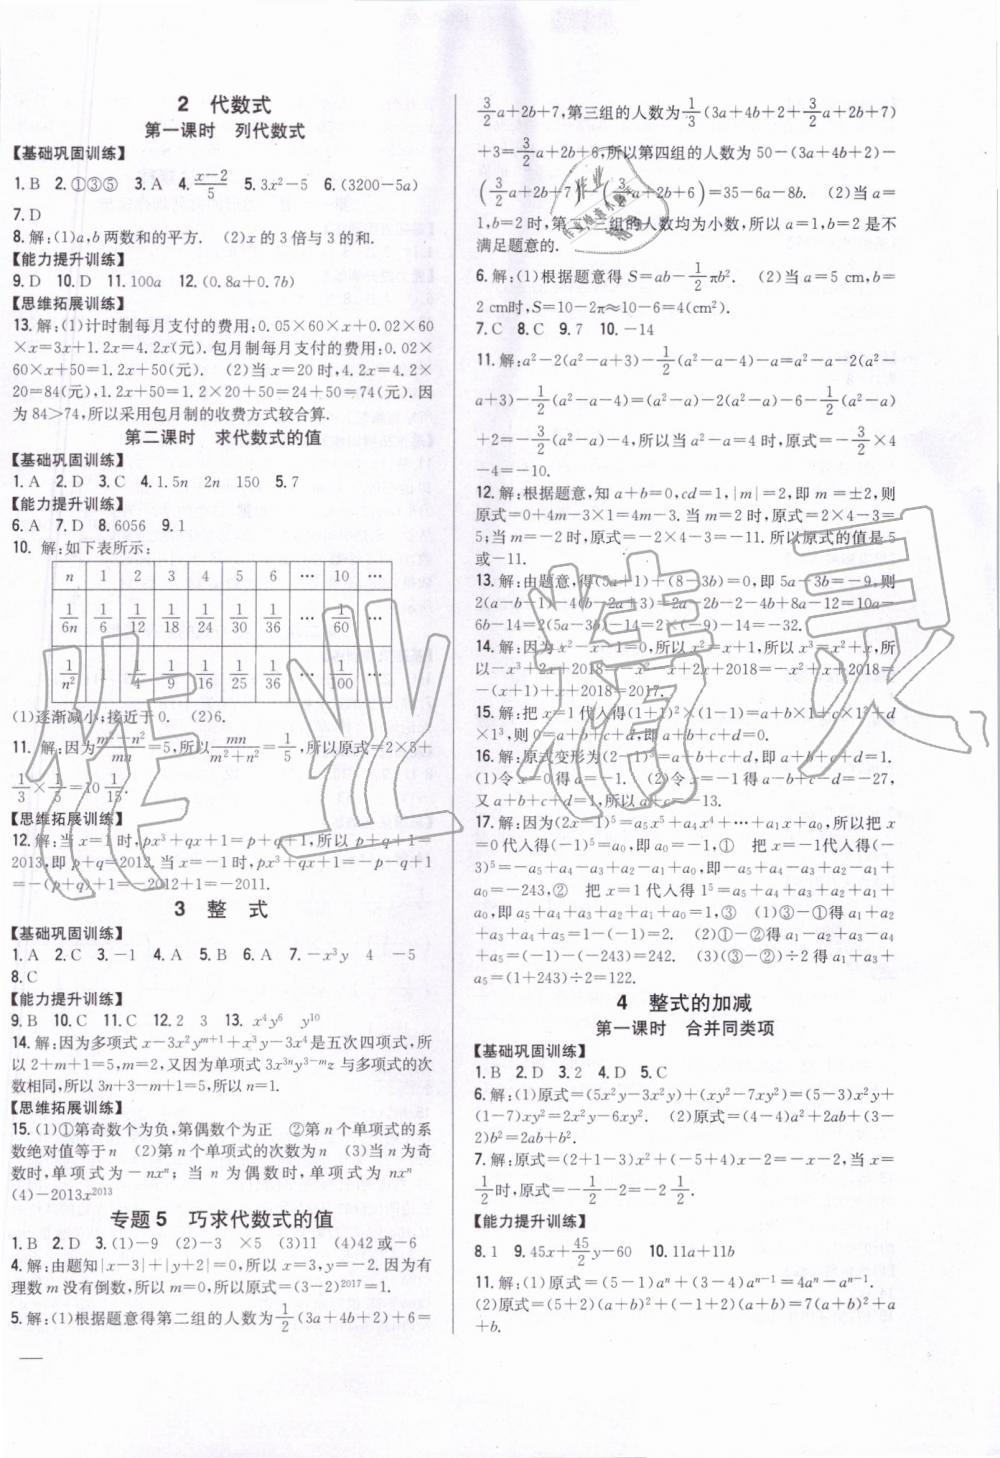 2　代数式
第一课时　列代数式
【基础巩固训练】
1. B　2. ①③⑤　3. A　4. (x-2)/5　5. 3x²-5　6. (3200-5a)
7. D
8. 解:(1)a,b两数和的平方.　(2)x的3倍与3的和.
【能力提升训练】
9. D　10. D　11. 100a　12. (0.8a+0.7b)
【思维拓展训练】
13. 解:(1)计时制每月支付的费用:0.05×60×x+0.02×60
×x=3x+1.2x=4.2x(元).包月制每月支付的费用:0.02×
60×x+50=1.2x+50(元).　(2)当x=20时,4.2x=4.2×
20=84(元),1.2x+50=1.2×20+50=24+50=74(元).因
为84>74,所以采用包月制的收费方式较合算.
第二课时　求代数式的值
【基础巩固训练】
1. A　2. D　3. C　4. 1.5n　2n　150　5. 7
【能力提升训练】
6. A　7. D　8. 6056　9. 1
10. 解:如下表所示:
n　1　2　3　4　5　6　…　10　…
1/6n　1/6　1/12　1/18　1/24　1/30　1/36　…　1/60　…
1/n²　1/4　1/9　1/16　1/25　1/36　…　1/100　…
(1)逐渐减小;接近于0.　(2)6.
11. 解:因为(m²+n²)/mn=5,所以mn/(m²+n²)=1/5,所以原式=2×5+
1/3×1/5=10 1/15.
【思维拓展训练】
12. 解:当x=1时,px³+qx+1=p+q+1,所以p+q+1=
2013,即p+q=2012.当x=-1时,px³+qx+1=-p-q+1
=-(p+q)+1=-2012+1=-2011.
3　整　式
【基础巩固训练】
1. A　2. C　3. -1　4. A　5. B　6. A　7. -x³y　4　-5
8. C
【能力提升训练】
9. B　10. C　11. C　12. 2　3　13. x⁴y⁶　y¹⁰
14. 解:因为多项式x-3x²yᵐ⁺¹+x³y-3x⁴是五次四项式,所
以2+m+1=5,m=2,又因为单项式3x³ⁿy³⁻ᵐz与多项式的次
数相同,所以3n+3-m+1=5,所以n=1.
【思维拓展训练】
15. (1)①第奇数个为负,第偶数个为正　②第n个单项式的系
数绝对值等于n　(2)第n个单项式的次数为n　(3)当n为奇
数时,单项式为-nxⁿ;当n为偶数时,单项式为nxⁿ
(4)-2013x²⁰¹³
专题5　巧求代数式的值
1. B　2. D　3. (1)-9　(2)-3　×5　(3)11　(4)42或-6
4. 解:由题知|x-3|+|y+2|=0,所以x=3,y=-2.因为有
理数m没有倒数,所以m=0,所以原式=(3-2)²⁰¹⁷=1.
5. 解:(1)根据题意得第二组的人数为1/2(3a+4b+2)+6=
3/2a+2b+7,第三组的人数为1/3(3a+4b+2+3/2a+2b+7)
+3=3/2a+2b+6,所以第四组的人数为50-(3a+4b+2)-
(3/2a+2b+7)-(3/2a+2b+6)=35-6a-8b.　(2)当a=
1,b=2时,第二、三组的人数均为小数,所以a=1,b=2是不
满足题意的.
6. 解:(1)根据题意得S=ab-1/2πb².　(2)当a=5 cm,b=
2 cm时,S=10-2π≈10-6=4(cm²).
7. C　8. C　9. 7　10. -14
11. 解:a²-2(a²-a+3)-1/2(a²-a-4)-a=a²-a-2(a²-
a+3)-1/2(a²-a-4)=(a²-a)-2(a²-a)-6-1/2(a²-a)
+2=-3/2(a²-a)-4,所以当a²-a=4时,原式=-3/2×4
-4=-10.
12. 解:根据题意,知a+b=0,cd=1,|m|=2,即m=±2,则
原式=0+4m-3×1=4m-3.当m=2时,原式=2×4-3=
5;当m=-2时,原式=-2×4-3=-11.所以原式的值是5
或-11.
13. 解:由题意,得(5a+1)+(8-3b)=0,即5a-3b=-9.则
2(a-b-1)-4(b-2a+3)=2a-2b-2-4b+8a-12=10a-
6b-14=2(5a-3b)-14=2×(-9)-14=-32.
14. 解:因为x²-x-1=0,所以x²=x+1,所以x³=x²+x,所
以-x³+2x+2018=-x²-x+2x+2018=-x²+x+2018=
-(x+1)+x+2018=2017.
15. 解:把x=1代入得(1+1)²×(1-1)=a+b×1+c×1²+d
×1³,则0=a+b+c+d,即a+b+c+d=0.
16. 解:原式变形为(2-1)⁵=a+b+c+d,即a+b+c+d=1.
(1)令x=0得a=-1.　(2)令x=-1得a-b+c-d=-27,
又a+b+c+d=1,所以a+c=-13.
17. 解:因为(2x-1)⁵=a₅x⁵+a₄x⁴+…+a₁x+a₀,所以把x
=0代入得(-1)⁵=a₀,即a₀=-1,①　把x=-1代入得(-
3)⁵=-a₅+a₄-a₃+a₂-a₁+a₀,即-a₅+a₄-a₃+a₂-a₁+
a₀=-243,②　把x=1代入得1⁵=a₅+a₄+a₃+a₂+a₁+
a₀,即a₅+a₄+a₃+a₂+a₁+a₀=1,③　(1)③-①得a₁+a₂
+a₃+a₄+a₅=1-(-1)=2.　(2)①-②得a₁-a₂+a₃-a₄
+a₅=(-1)-(-243)=242.　(3)(③-②)÷2得a₁+a₃+
a₅=(1+243)÷2=122.
4　整式的加减
第一课时　合并同类项
【基础巩固训练】
1. B　2. D　3. 2　4. D　5. C
6. 解:(1)原式=(5x²y-3x²y)+(xy²-7xy²)=(5-3)x²y+
(1-7)xy²=2x²y-6xy².　(2)原式=(4-4)a²+2ab+(3-
2)b²=2ab+b².
7. 解:原式=(2+1-3)x²+(-5+4)x-2=-x-2,当x=
1/2时,原式=-1/2-2=-2 1/2.
【能力提升训练】
8. 1　9. 45x+45/2y-60　10. 11a+11b
11. 解:(1)原式=(5-1)aⁿ+(3-4)aⁿ⁻¹=4aⁿ-aⁿ⁻¹.
(2)原式=(5+2)(a+b)²+(-1+2)(a+b)=7(a+b)²+a
+b.
作业精灵